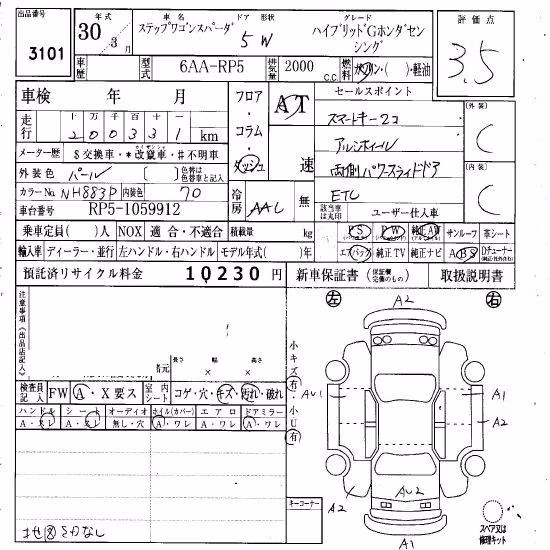 出品番号 3101
年式 30年 3月
車名 ステップワゴンスパーダ
ドア 形状 5W
グレード ハイブリッドGホンダセンシング
評価点 3.5
車歴
型式 6AA-RP5
排気量 2000 C.C.
燃料 ガソリン・( )・軽油
車検 年 月
フロア・コラム・ダッシュ
AT 速
セールスポイント
スマートキー2コ
アルミホイール
両側パワースライドドア
ETC
(外装) C
(内装) C
走行 十万千百十一 200331 km
メーター歴 $交換車・*改竄車・#不明車
外装色 パール ( ) 色替車は色替車と記入
カラーNo. NH883P 内装色 70
冷房 AAC 無
該当車は丸印 ユーザー仕入車
車台番号 RP5-1059912
乗車定員( )人 NOX 適合・不適合 積載量 kg
PS PW 純正AW サンルーフ 革シート
輸入車 ディーラー・並行 左ハンドル・右ハンドル モデル年式( )年
エアバック 純正TV 純正ナビ ABS Dチューナー
預託済リサイクル料金 10230円
新車保証書 (保証欄完備のもの) 取扱説明書
注意事項(出品店記入)
左 A2 右
寸元 長さ × 幅 × 高さ
小キズ(有)・小U(有)
検査員記入 FW A・X要ス 室内シート コゲ・穴・キズ・汚れ・破れ
ハンドル シート オーディオ ホイル(カバー) エアロ ドアミラー
A・スレ A・スレ 無し・穴 A・ワレ A・ワレ A・ワレ
AU1 A1
A2
A2 AU2 A2
A1
キーコーナー
スペア又は修理キット